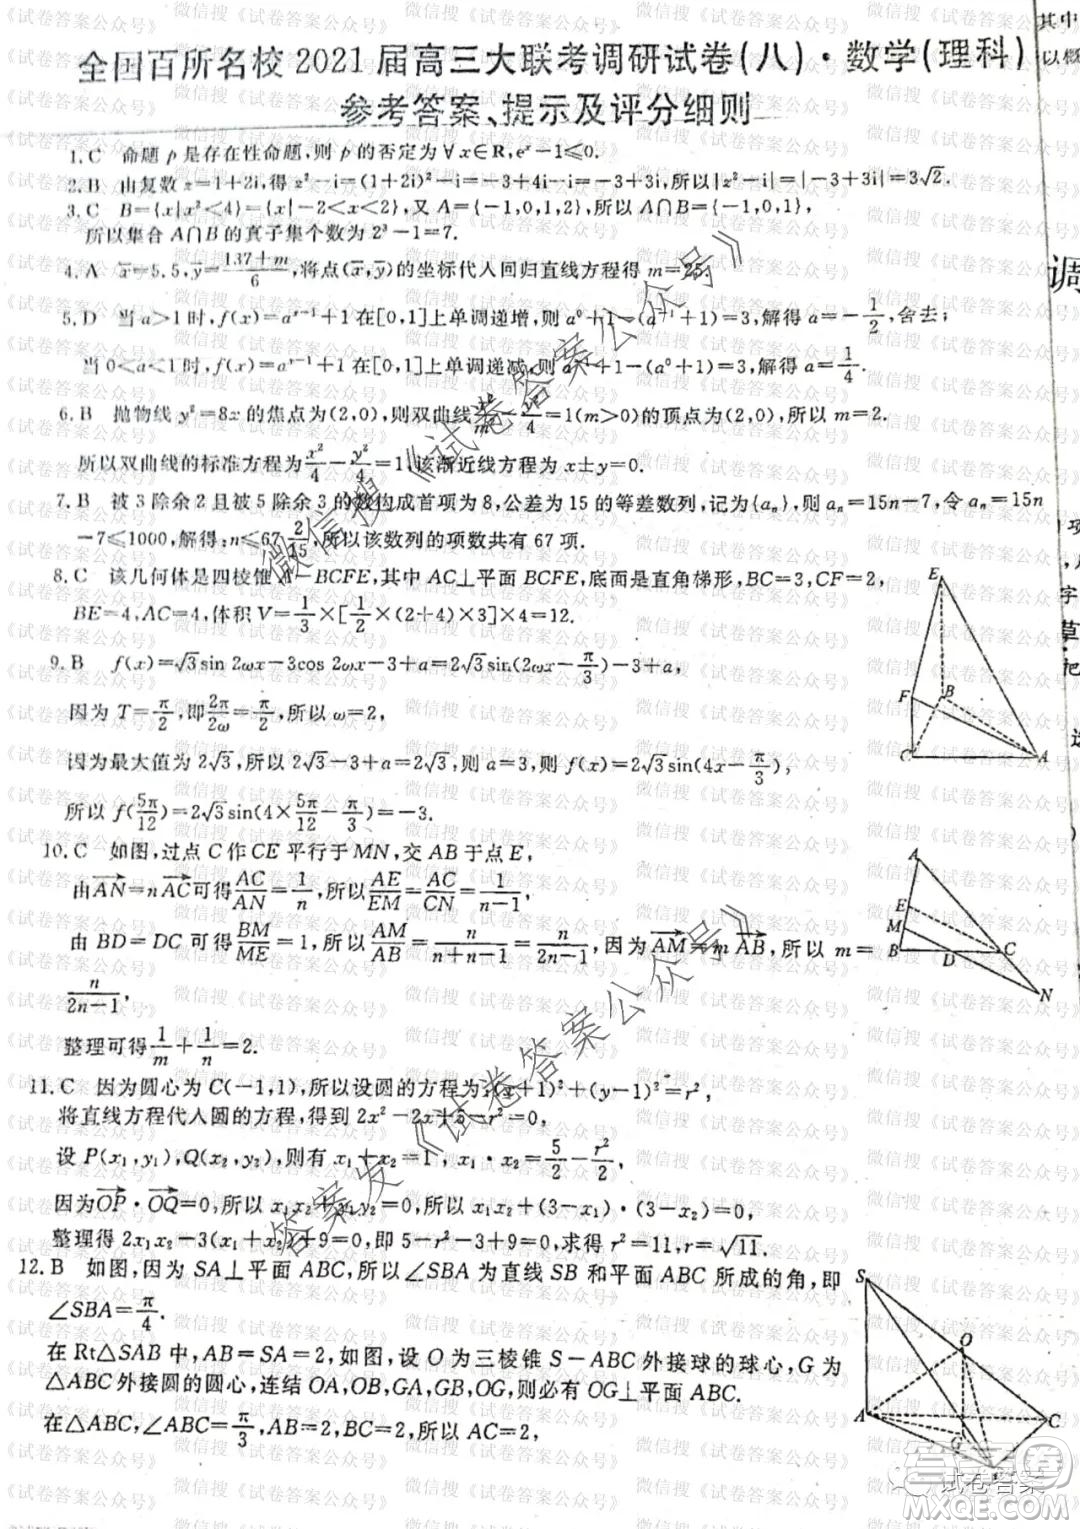 全国百所名校2021届高三大联考调研试卷(八)·数学(理科)
参考答案、提示及评分细则
1.C 命题 p 是存在性命题,则 p 的否定为 ∀x∈R,eˣ-1≤0.
2.B 由复数 z=1+2i,得 z²-i=(1+2i)²-i=-3+4i-i=-3+3i,所以|z²-i|=|-3+3i|=3√2.
3.C B={x|x²<4}={x|-2<x<2},又 A={-1,0,1,2},所以 A∩B={-1,0,1},
所以集合 A∩B 的真子集个数为 2³-1=7.
4.A x̄=5.5,ȳ=(137+m)/6,将点(x̄,ȳ)的坐标代人回归直线方程得 m=25.
5.D 当 a>1 时,f(x)=aˣ⁻¹+1 在[0,1]上单调递增,则 a⁰+1-(a⁻¹+1)=3,解得 a=-1/2,舍去;
当 0<a<1 时,f(x)=aˣ⁻¹+1 在[0,1]上单调递减,则 a⁻¹+1-(a⁰+1)=3,解得 a=1/4.
6.B 抛物线 y²=8x 的焦点为(2,0),则双曲线 -y²/4=1(m>0)的顶点为(2,0),所以 m=2.
所以双曲线的标准方程为 x²/4-y²/4=1,该渐近线方程为 x±y=0.
7.B 被 3 除余 2 且被 5 除余 3 的数构成首项为 8,公差为 15 的等差数列,记为{aₙ},则 aₙ=15n-7,令 aₙ=15n
-7≤1000,解得:n≤67 2/15,所以该数列的项数共有 67 项.
8.C 该几何体是四棱锥 A-BCFE,其中 AC⊥平面 BCFE,底面是直角梯形,BC=3,CF=2,
BE=4,AC=4,体积 V=1/3×[1/2×(2+4)×3]×4=12.
9.B f(x)=√3sin 2ωx-3cos 2ωx-3+a=2√3sin(2ωx-π/3)-3+a,
因为 T=π/2,即2π/2ω=π/2,所以 ω=2,
因为最大值为 2√3,所以 2√3-3+a=2√3,则 a=3,则 f(x)=2√3sin(4x-π/3),
所以 f(5π/12)=2√3sin(4×5π/12-π/3)=-3.
10.C 如图,过点 C 作 CE 平行于 MN,交 AB 于点 E,
由AN=nAC可得AC/AN=1/n,所以AE/EM=AC/CN=1/(n-1),
由 BD=DC 可得BM/ME=1,所以AM/AB=n/(n+n-1)=n/(2n-1),因为AM=mAB,所以 m=
n/(2n-1),
整理可得1/m+1/n=2.
11.C 因为圆心为 C(-1,1),所以设圆的方程为(x+1)²+(y-1)²=r²,
将直线方程代人圆的方程,得到 2x²-2x+5-r²=0,
设 P(x₁,y₁),Q(x₂,y₂),则有 x₁+x₂=1,x₁·x₂=5/2-r²/2,
因为OP·OQ=0,所以 x₁x₂+y₁y₂=0,所以 x₁x₂+(3-x₁)·(3-x₂)=0,
整理得 2x₁x₂-3(x₁+x₂)+9=0,即 5-r²-3+9=0,求得 r²=11,r=√11.
12.B 如图,因为 SA⊥平面 ABC,所以∠SBA 为直线 SB 和平面 ABC 所成的角,即
∠SBA=π/4.
在 Rt△SAB 中,AB=SA=2,如图,设 O 为三棱锥 S-ABC 外接球的球心,G 为
△ABC 外接圆的圆心,连结 OA,OB,GA,GB,OG,则必有 OG⊥平面 ABC.
在△ABC,∠ABC=π/3,AB=2,BC=4,则 AC=2,
E
F
B
C
A
A
E
M
B
D
C
N
S
O
A
C
G
其中
以概
调
字
草
把
微信搜《试卷答案公众号》
答案发《试卷答案公众号》
试卷答案
答案圈
MXQE.COM